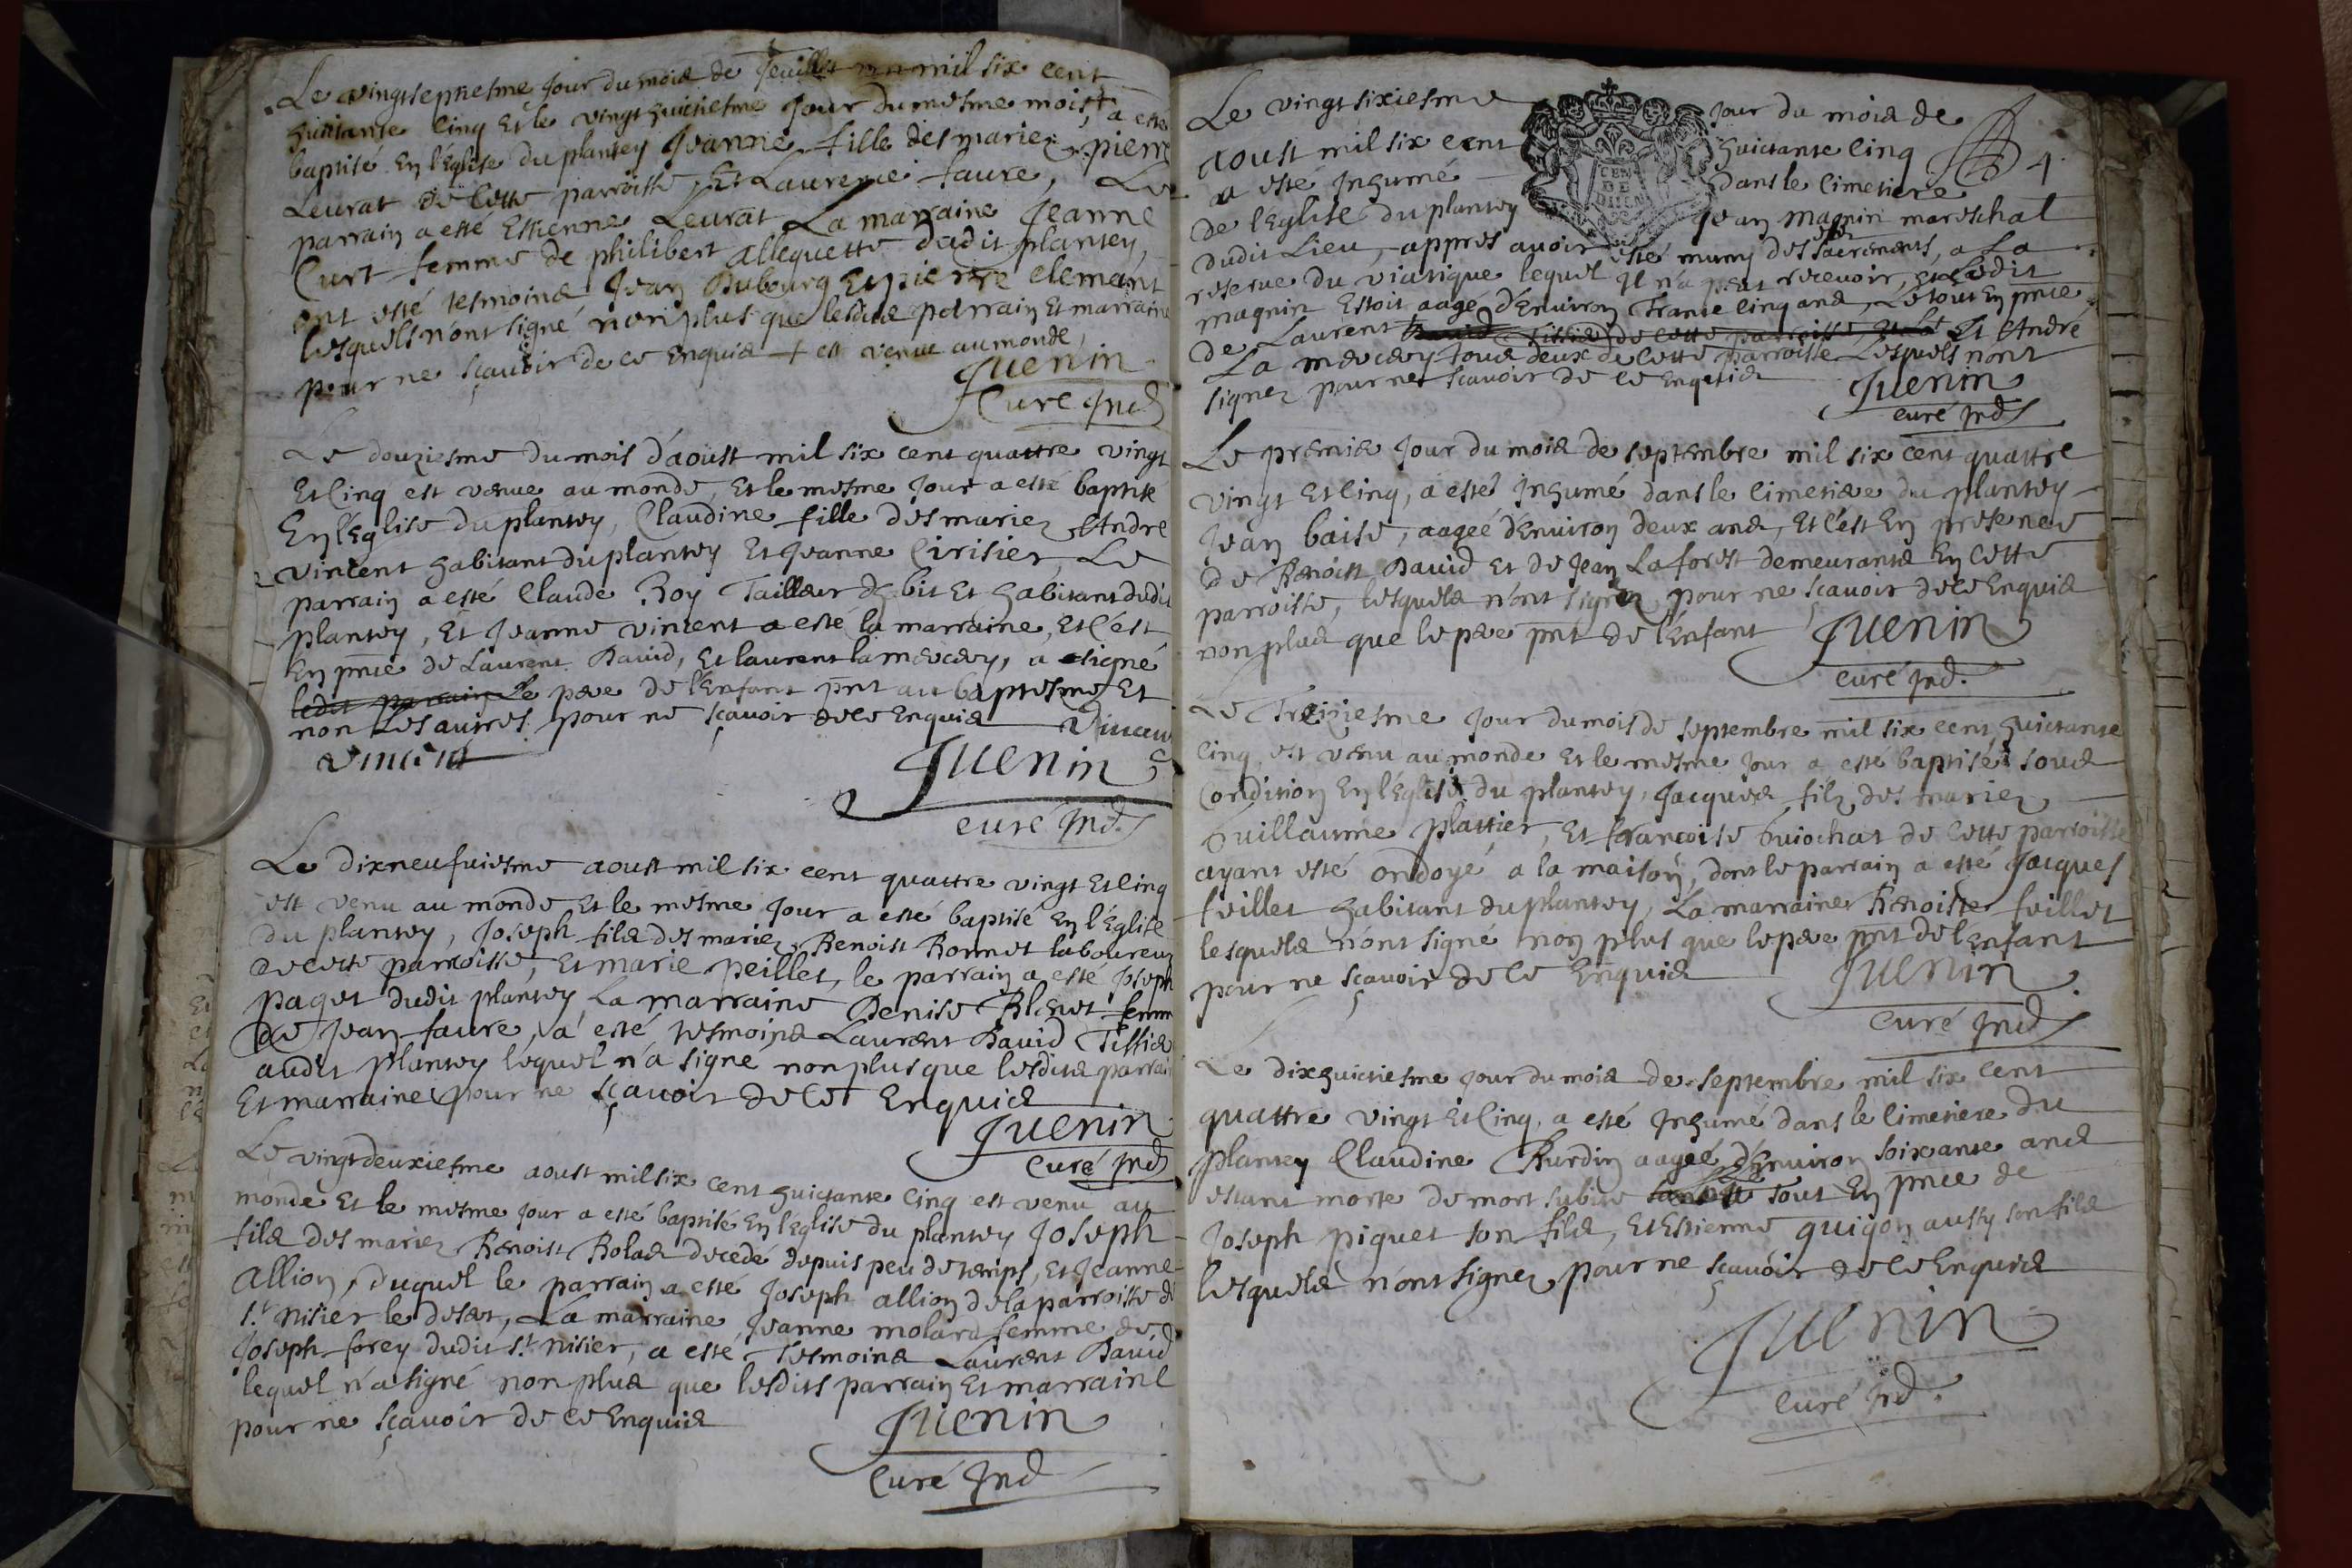 Le vingtseptiesme Jour du mois de Jeuillet mil six cent
huictante Cinq Et le vingthuictiesme Jour du mesme mois + a esté
baptisé En l'Eglise du plantey Jeanne fille des mariez pierre
Leurat de Cette parroisse, Et Laurence faure, Le
parrain a esté Estienne Leurat La marraine Jeanne
Curt femme de philibert allequette dudit plantey,
ont esté tesmoins Jean Dubourg Et pierre Clemant
lesquels n'ont signé non plus que lesdits parrain Et marraine
pour ne sçavoir de ce Enquis + est venue au monde,
Juenin
Curé Ind
Le douziesme du mois d'aoust mil six cent quattre vingt
Et Cinq est venue au monde, Et le mesme Jour a esté baptisé
En l'Eglise du plantey, Claudine fille des mariez André
vincent habitant du plantey Et Jeanne Cirisier, Le
parrain a esté Claude Roy Tailleur d'habit Et habitant dudit
plantey, Et Jeanne vincent a esté la marraine, Et c'est
En pnce de Laurent David, Et laurent la mercery, a signé
ledit parrain Le pere de l'Enfant pnt au baptesme Et
non Les autres pour ne sçavoir de ce Enquis
vincent
Juenin
curé Ind.
Le dixneufuiesme aoust mil six cent quattre vingt Et Cinq
est venu au monde Et le mesme Jour a esté baptisé En l'Eglise
du plantey, Joseph fils des mariez Benoist Bonnet laboureur
de cette parroisse, Et marie peillet, le parrain a esté Joseph
paget dudit plantey, La marraine Denise Blanet femme
de Jean faure, a esté tesmoins Laurent David Tissier
audit plantey lequel n'a signé non plus que lesdits parrain
Et marraine pour ne sçavoir de ce Enquis
Juenin
Curé Ind
Le vingtdeuxiesme aoust mil six cent huictante Cinq est venu au
monde Et le mesme Jour a esté baptisé En l'Eglise du plantey Joseph
fils des mariez Benoist Rolas decedé depuis peu de temps, Et Jeanne
Allion, duquel le parrain a esté Joseph allion de la parroisse de
St. nisier le desert, La marraine Jeanne molard femme de
Joseph forey dudit St. nisier, a esté Tesmoins Laurent David
lequel n'a signé non plus que lesdits parrain Et marraine
pour ne sçavoir de ce Enquis
Juenin
Curé Ind
Le vingtsixiesme Jour du mois de
aoust mil six cent huictante Cinq
a esté Inhumé dans le Cimetiere
4.
de l'Eglise du plantey Jean magnin mareschal
dudit Lieu, appres avoir esté muny des sacrements, a La
reserue du viatique lequel Il n'a peut recevoir, Et Ledit
magnin Estoit aagé d'Environ Trante Cinq ans, Le tout En pnce
de Laurent David Tissier de cette parroisse Et André
La mercery tous deux de Cette parroisse Lesquels n'ont
signez pour ne sçavoir de ce Enquis
Juenin
curé Ind
Le premier Jour du mois de septembre mil six cent quattre
vingt Et Cinq, a esté Inhumé dans le Cimetiere du plantey
Jean baise, aageé d'Environ deux ans, Et c'est En presence
de Benoist David Et de Jean Laforest demeurants En Cette
parroisse, lesquels n'ont signez pour ne sçavoir de ce Enquis
non plus que le pere pnt de l'Enfant
Juenin
curé Ind.
Le Treiziesme Jour du mois de septembre mil six cent huictante
Cinq est venu au monde Et le mesme Jour a esté baptisé sous
Condition En l'Eglise du plantey, Jacques fils des mariez
Guillaume plattier, Et francoise Guiochat de Cette parroisse
ayant esté ondoyé a la maison, dont le parrain a esté Jacques
feillet habitant du plantey, La marraine Benoiste feillet
lesquels n'ont signé non plus que le pere pnt de l'Enfant
pour ne sçavoir de ce Enquis
Juenin
Curé Ind
Le dixhuictiesme Jour du mois de septembre mil six cent
quattre vingt Et Cinq, a esté Inhumé dans le Cimetiere du
plantey Claudine Burdin aageé d'Environ soixante ans
estant morte de mort subite tout En pnce de
Joseph piquet son fils, Et Estienne guigon aussy son fils
lesquels n'ont signez pour ne sçavoir de ce Enquis
Juenin
Curé Ind.